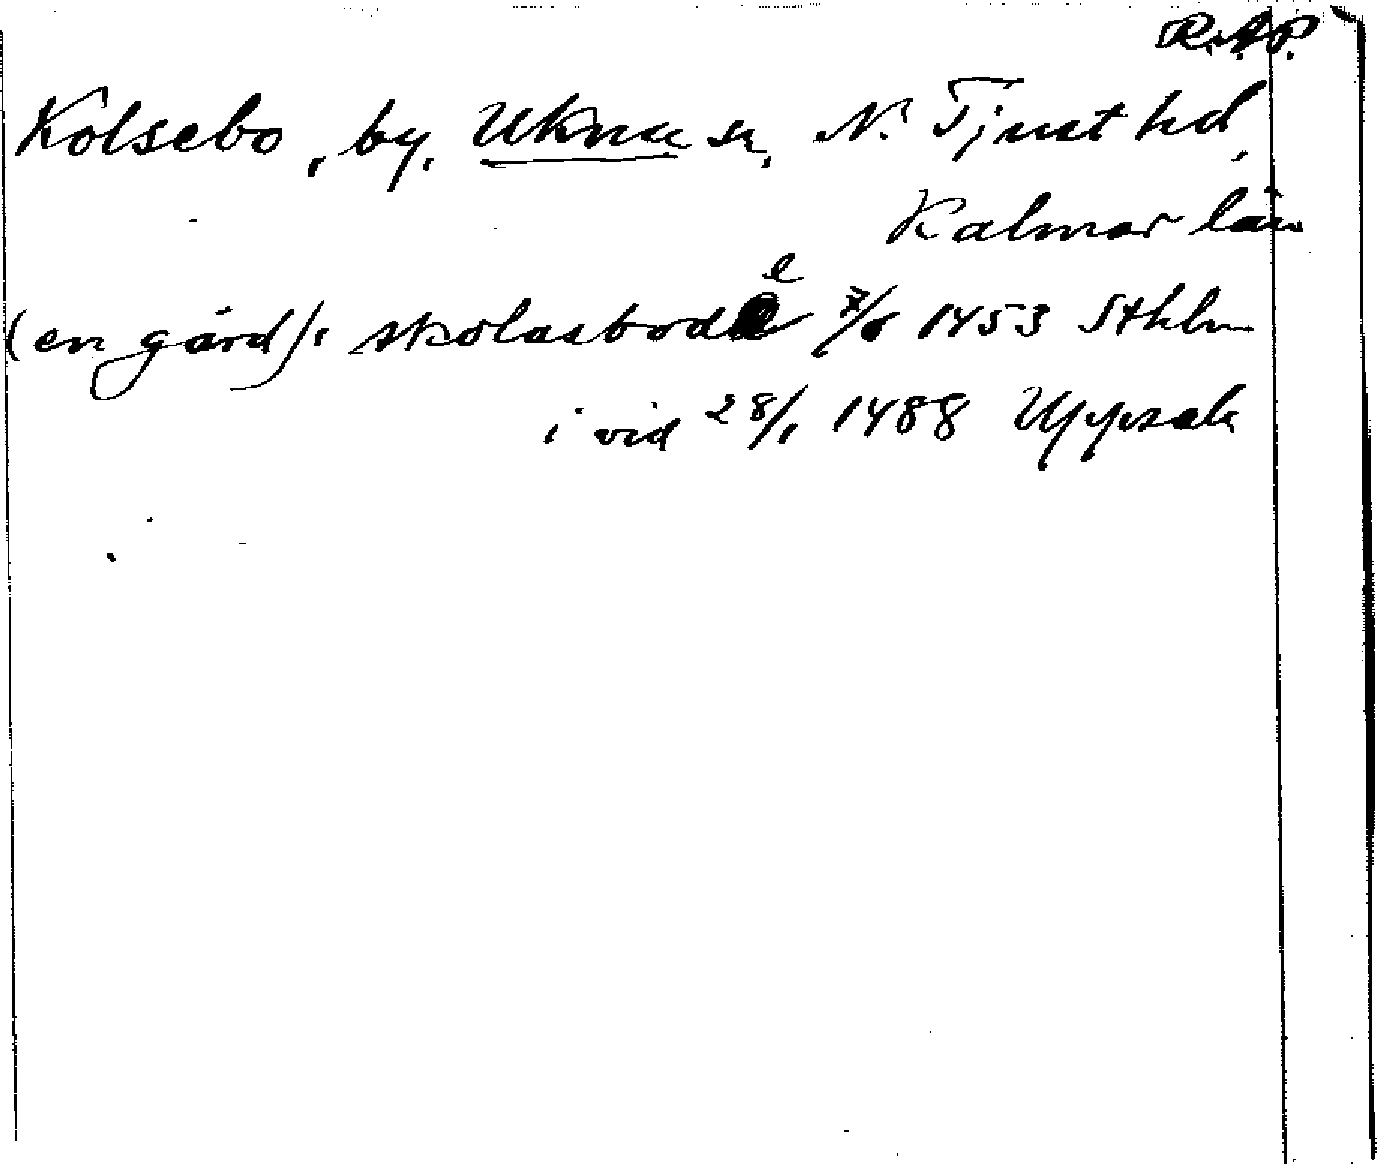 R.A.P.
Kolsebo, by, Ukna sn, N. Tjust hd,
Kalmar län
(en gård): skolasbode 1453 Sthlm
i vid 28/1 1488 Uppsala